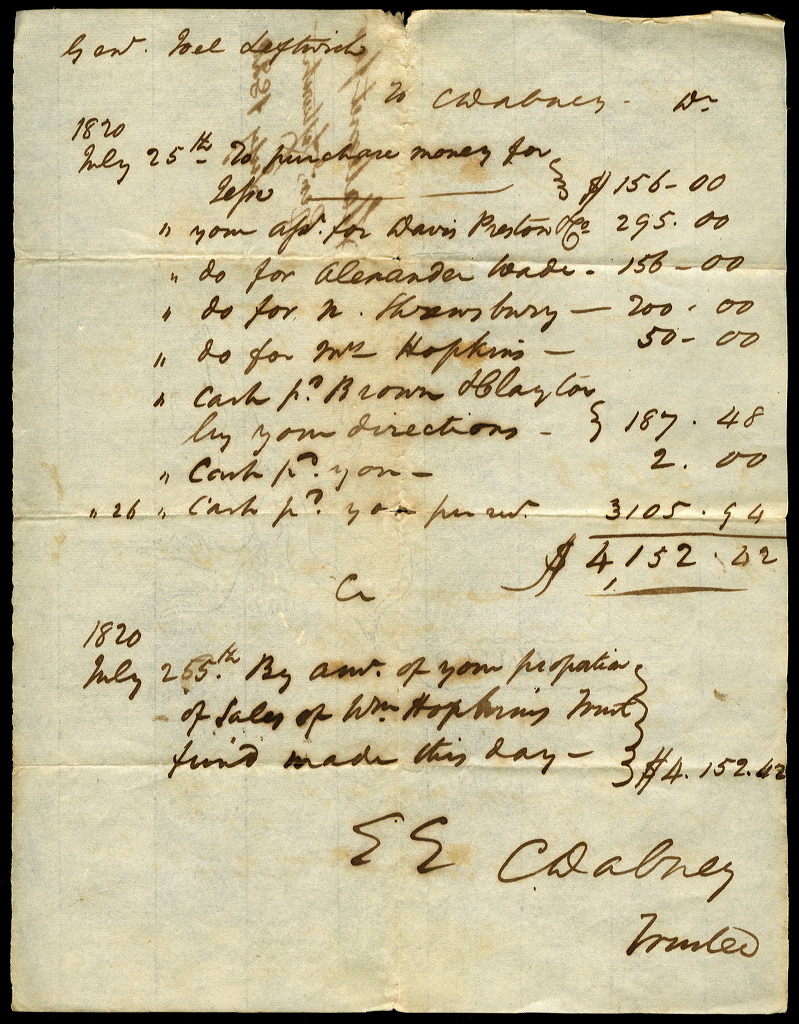 Genl. Joel Leftwich
To CDabney - Dr
1820
July 25th To purchase money for
Jesse — — } $156-00
" your asst. for Davis Preston &Co 295.00
" do for Alexander Wade - 156-00
" do for N. Shrewsbury — 200.00
" do for Mrs Hopkins — 50-00
" Cash pd. Brown &Clayton
by your directions - } 187.48
" Cash pd. you - 2.00
" 26 " Cash pd. you per rect. 3105.94
$4,152.42
Cr
1820
July 255th. By amt. of your proportion
of Sales of Wm Hopkins Trust
fund made this day - } $4.152.42
E E CDabney
Trustee